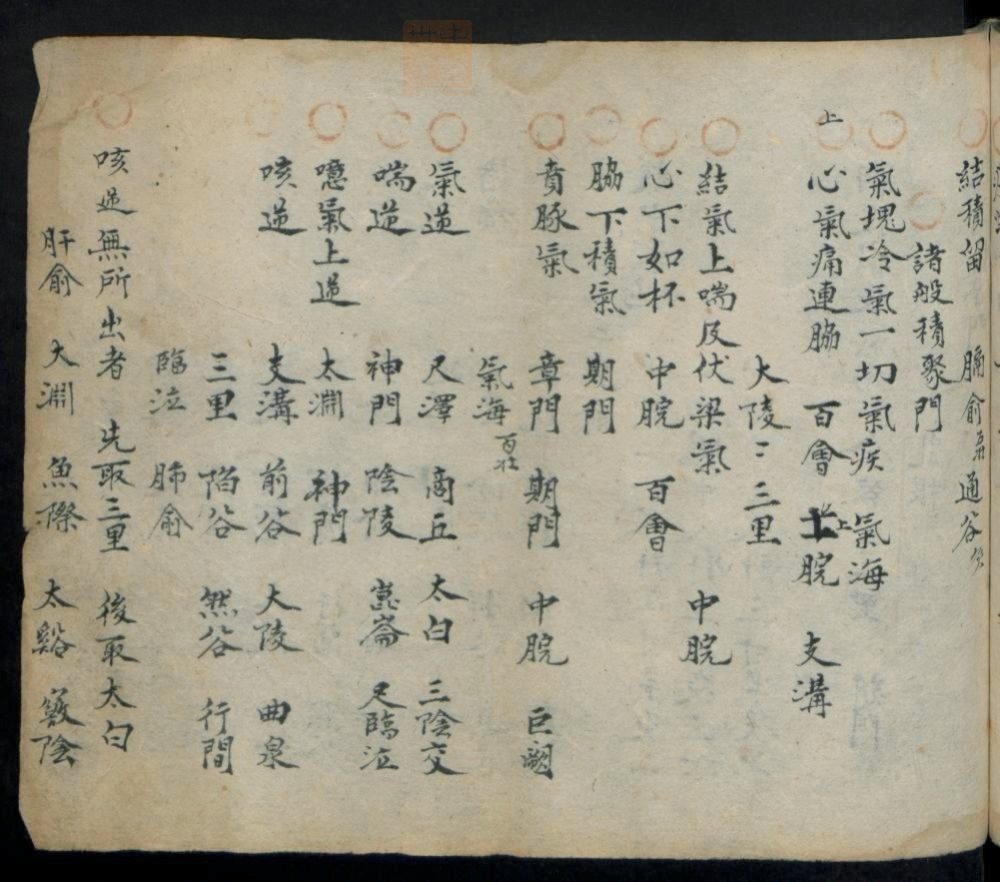 結積留　膈俞　通谷
諸般積聚門
氣塊冷氣一切氣疾　氣海
心氣痛連脇　百會　上脘　支溝
大陵　三里
結氣上喘及伏梁氣　中脘
心下如杯　中脘　百會
脇下積氣　期門
賁豚氣　章門　期門　中脘　巨闕
氣海百壯
氣逆　尺澤　商丘　太白　三陰交
喘逆　神門　陰陵　崑崙　足臨泣
噫氣上逆　太淵　神門
咳逆　支溝　前谷　大陵　曲泉
三里　陷谷　然谷　行間
臨泣　肺俞
咳逆無所出者　先取三里　後取太白
肝俞　大淵　魚際　太谿　竅陰